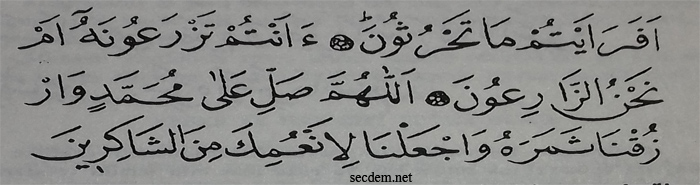 اَفَرَاَيْتُمْ مَا تَحْرُثُونَ ۞ ءَاَنْتُمْ تَزْرَعُونَهُٓ اَمْ
نَحْنُ الزَّارِعُونَ ۞ اَللّٰهُمَّ صَلِّ عَلٰى مُحَمَّدٍ وَارْ
زُقْنَا ثَمَرَهُ وَاجْعَلْنَا لِاَنْعُمِكَ مِنَ الشَّاكِرِينَ
secdem.net